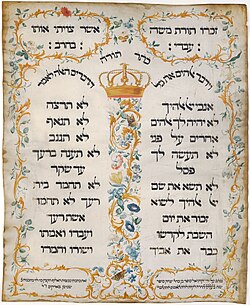 זכרו תורת משה
עבדי:
אשר צויתי אותו
בחרב:
כתר תורה
וידבר אלהים את כל
הדברים האלה לאמר
אנכי י אלהיך
לא יהיה לך אלהים
אחרים על פני
לא תעשה לך
פסל
לא תשא את שם
י אלהיך לשוא
זכור את יום
השבת לקדשו
כבד את אביך
לא תרצח
לא תנאף
לא תגנב
לא תענה ברעך
עד שקר
לא תחמד בית
רעך לא תחמד
אשת רעך
ועבדו ואמתו
ושורו וחמרו